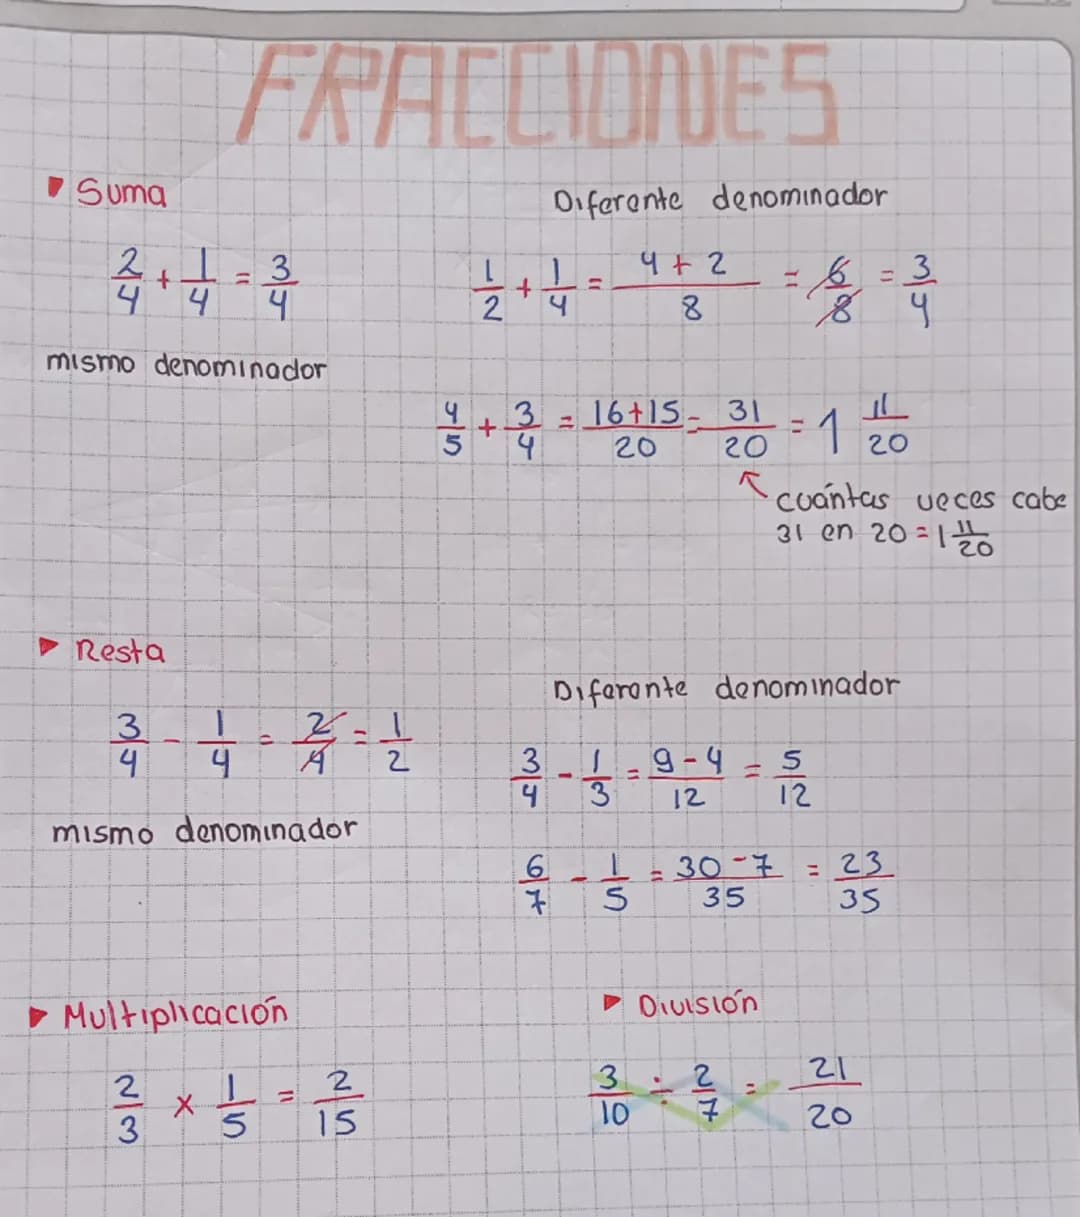 FRACCIONES
Suma
2/4 + 1/4 = 3/4
mismo denominador
Diferente denominador
1/2 + 1/4 = 4 + 2/8 = 6/8 = 3/4
4/5 + 3/4 = 16+15/20 = 31/20 = 1 11/20
cuántas veces cabe
31 en 20 = 1 11/20
Resta
3/4 - 1/4 = 2/4 = 1/2
mismo denominador
Diferente denominador
3/4 - 1/3 = 9-4/12 = 5/12
6/7 - 1/5 = 30-7/35 = 23/35
Multiplicación
2/3 x 1/5 = 2/15
División
3/10 ÷ 2/7 = 21/20